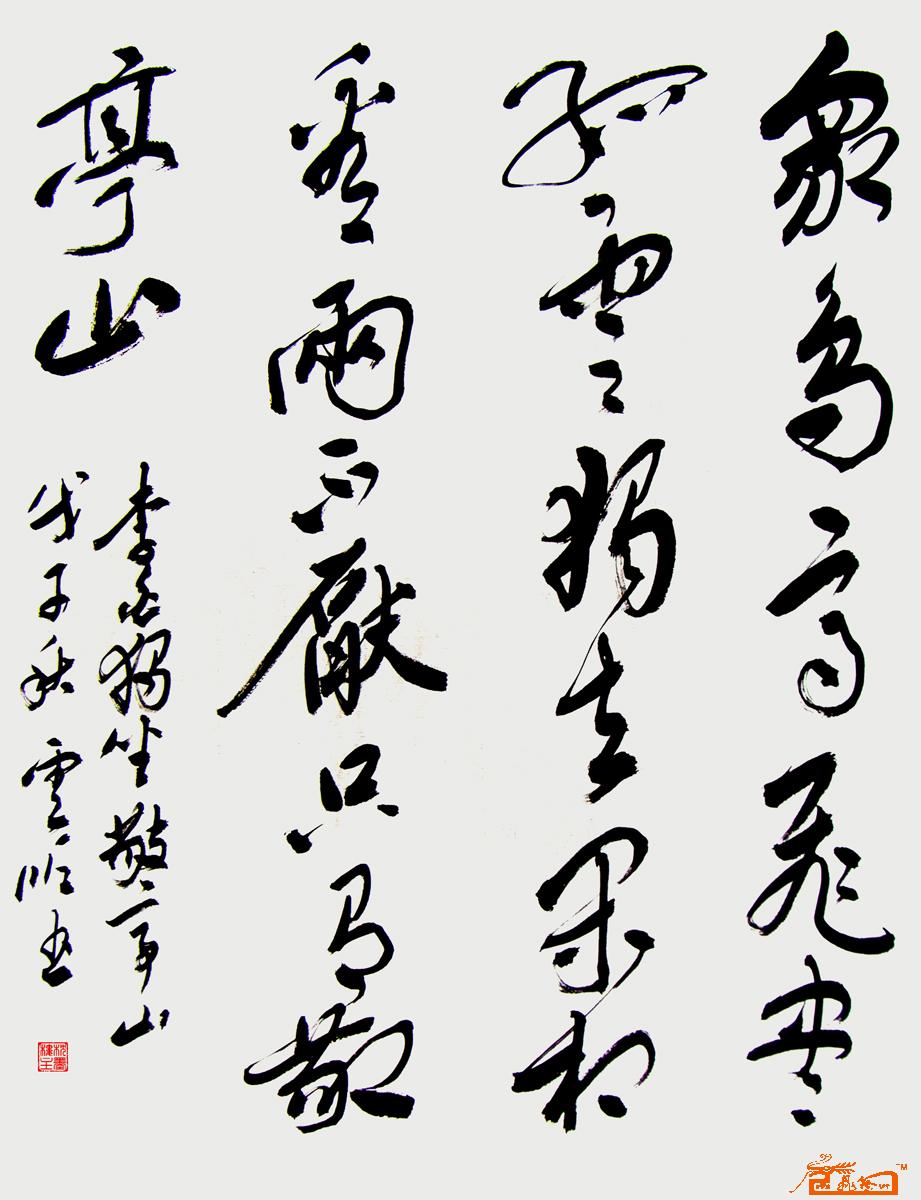 眾鳥高飛盡
孤雲獨去閑相
看兩不厭只有敬
亭山
李白獨坐敬亭山
戊子秋 雲書